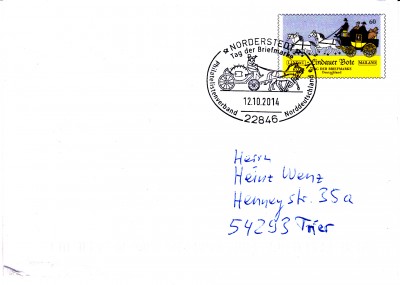 NORDERSTEDT
Tag der Briefmarke
Philatelistenverband Norddeutschland
12.10.2014
22846
60
LINDAU Lindauer Bote MAILAND
TAG DER BRIEFMARKE
Deutschland
Herrn
Heinz Wenz
Henneystr. 35a
54293 Trier